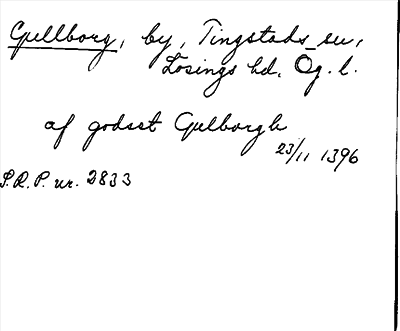 Gullborg, by, Tingstads su,
Lösings hd, Ög. l.
af godset Gulborgh
23/11 1396
S.R.P. nr. 2833